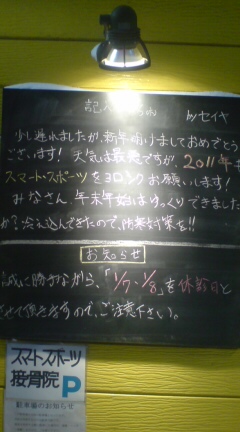 by セイヤ
少し遅れましたが、新年明けましておめでとう
ございます! 天気は最悪ですが、2011年も
スマート・スポーツをヨロシクお願いします!
みなさん、年末年始はゆっくりできました
か? 冷え込んできたので、防寒対策を!!
お知らせ
勝手ながら、「1/7・1/8」を休診日と
させて頂きますので、ご注意下さい。
スマートスポーツ
接骨院 P
駐車場のお知らせ